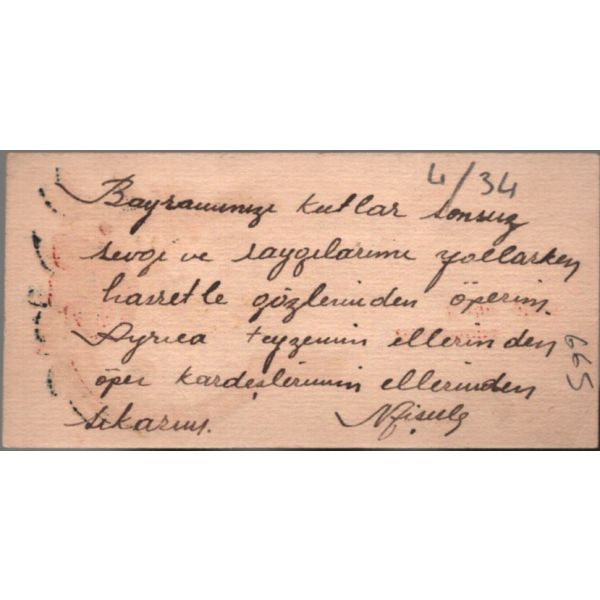 4/34
Bayramınızı kutlar sonsuz
sevgi ve saygılarımı yollarken
hasretle gözlerinden öperim.
Ayrıca teyzemin ellerinden
öper kardeşlerimin ellerinden
sıkarım.
599